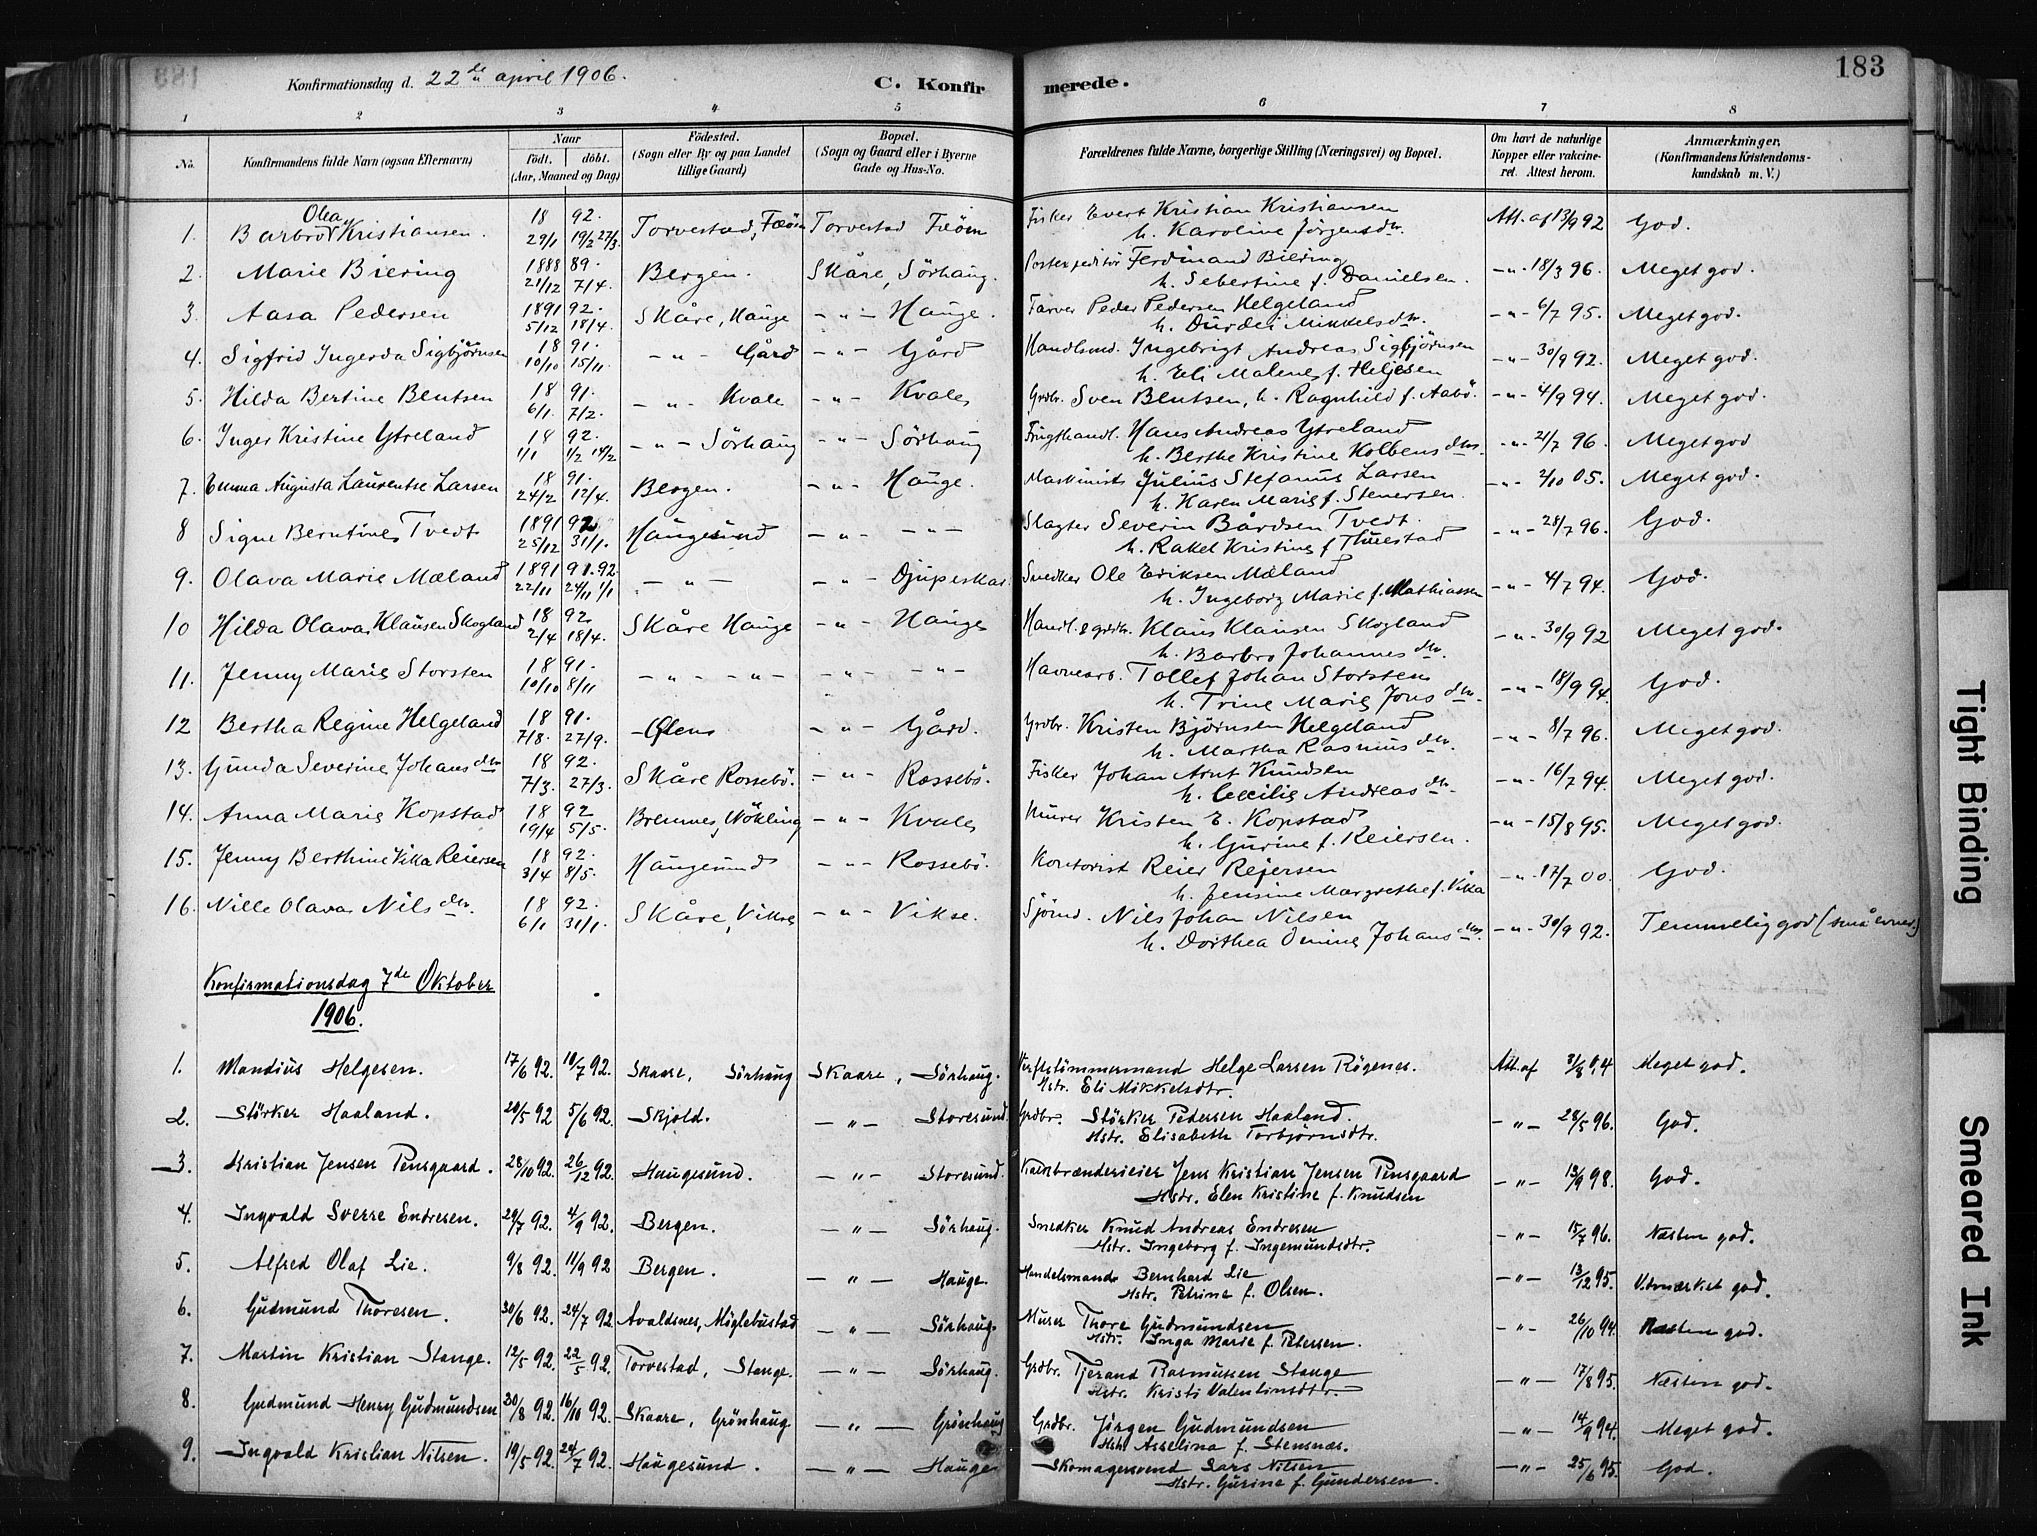 183
Konfirmationsdag d. 22de april 1906.
C. Konfirmerede.
1 2 3 4 5 6 7 8
No. Konfirmandens fulde Navn (ogsaa Efternavn) Naar født. døbt. (Aar, Maaned og Dag) Fødested. (Sogn eller By og paa Landet tillige Gaard) Bopæl. (Sogn og Gaard eller i Byerne Gade og Hus-No. Forældrenes fulde Navne, borgerlige Stilling (Næringsvei) og Bopæl. Om havt de naturlige Kopper eller vakcineret. Attest herom. Anmærkninger, (Konfirmandens Kristendomskundskab m. V.)
1. Barbro Olea Kristiansen. 18 92. 29/1 19/2 27/3 Torvestad, Fæøen Torvestad Fæøen Fisker Evert Kristian Kristiansen h. Karoline Jörgensdtr. Att. af 13/9 92 God.
2. Marie Biering 1888 89. 21/12 7/4. Bergen. Skåre, Sörhaug. Postexpeditör Ferdinand Biering h. Sebertine f. Danielsen. -"- 18/3 96. Meget god.
3. Aasa Pedersen 1891 92. 5/12 18/4. Skåre, Hauge -"- Hauge. Farver Peder Pedersen Helgeland h. Durdei Mikkelsdtr. -"- 6/7 95. Meget god.
4. Sigfrid Ingerda Sigbjörnsen 18 91. 10/10 15/11 -"- Gård -"- Gård Handlsmd. Ingebrigt Andreas Sigbjörnsen h. Eli Malene f. Heljesen -"- 30/9 92. Meget god.
5. Hilda Bertine Bentsen 18 91. 6/1. 7/2. -"- Kvale -"- Kvale Grdbr. Sven Bentsen, h. Ragnhild f. Aabö. -"- 4/9 94. Meget god.
6. Inger Kristine Ytreland 18 92. 1/1 1/2 14/2 -"- Sörhaug -"- Sörhaug Frugthandl. Hans Andreas Ytreland h. Berthe Kristine Kolbensdtr. -"- 21/7 96. Meget god
7. Emma Augusta Laurentse Larsen 18 91. 24/2 12/4. Bergen. -"- Hauge. Maskinist Julius Stefanus Larsen h. Karen Marie f. Stenersen. -"- 2/10 05. Meget god.
8 Signe Berntine Tvedt 1891 92 25/12 31/1. Haugesund -"- -"- Slagter Severin Bårdsen Tvedt. h. Rakel Kristine f. Thuestad -"- 28/7 96. God.
9. Olava Marie Mæland 1891 91.92. 22/11 24/11 1/1 -"- -"- Djupeskar. Snedker Ole Eriksen Mæland h. Ingeborg Marie f. Mathiassen -"- 4/7 94. God.
10 Hilda Olava Klausen Skogland 18 92 2/4 18/4. Skåre Hauge -"- Hauge Handl. & grdbr. Klaus Klausen Skogland h. Barbro Johannesdtr. -"- 30/9 92 Meget god.
11. Jenny Marie Storsten 18 91. 10/10 8/11 -"- -"- -"- -"- Havnearb. Tollef Johan Storsten h. Trine Marie Jonsdtr. -"- 18/9 94. God.
12 Bertha Regine Helgeland 18 91. 7/8. 27/9. Ølen -"- Gård. Grdbr. Kristen Bjørnsen Helgeland h. Martha Rasmusdtr. -"- 8/7 96. Meget god.
13. Gunda Severine Johansdtr 18 92. 7/3. 27/3. Skåre Rossebö. -"- Rossebö. Fisker Johan Arnt Knudsen h. Cecilie Andreasdtr. -"- 16/7 94. Meget god.
14. Anna Marie Kopstad 18 92 19/4 5/5. Bremnes, -"- Kvale Murer Kristen E. Kopstad h. Gurine f. Reiersen. -"- 15/8 95. Meget god.
15. Jenny Berthine Vika Reiersen 18 92. 3/4 8/5. Haugesund -"- Rossebö. Kontorist Reier Rejersen h. Jensine Margrethe f. Vika -"- 17/7 00. God.
16. Nille Olava Nilsdtr. 18 92. 6/1 31/1. Skåre, Vikse -"- Vikse. Sjömd. Nils Johan Nilsen h. Dorthea Omine Johansdtr. -"- 30/9 92. Temmelig god (små evner.)
Konfirmationsdag 7de Oktober
1906.
1. Mandius Helgesen. 17/6 92. 10/7 92. Skaare, Sörhaug Skaare, Sörhaug. Verftstömmermand Helge Larsen Rögenes. Hstr. Eli Mikkelsdtr. Att. af 3/8 04 Meget god.
2. Störker Haaland. 20/5 92 5/6 92. Skjold. -"- Storesund Grdbr. Störker Pedersen Haaland. Hstr. Elisabeth Torbjörnsdtr. -"- 28/5 96. God.
3. Kristian Jensen Pensgaard. 28/10 92. 26/12 92. Haugesund. -"- Storesund. Kalkbrænderieier Jens Kristian Jensen Pensgaard Hstr. Elen Kristine f. Knudsen -"- 13/9 98. God.
4. Ingvald Sverre Endresen. 29/7 92. 4/9 92. Bergen. -"- Sörhaug. Snedker Knud Andreas Endresen Hstr. Ingeborg f. Ingemundsdtr. -"- 15/7 96. Næsten god.
5. Alfred Olaf Lie. 9/8 92. 11/9 92 Bergen. -"- Hauge. Handelsmand Bernhard Lie Hstr. Petrine f. Olsen. -"- 13/12 95. Udmærket god.
6. Gudmund Thoresen. 30/6 92. 24/7 92. Avaldsnes, Möglebustad -"- Sörhaug. Murer Thore Gudmundsen Hstr. Inga Marie f. Petersen. -"- 26/10 94. Næsten god.
7. Martin Kristian Stange. 12/5 92. 22/5 92. Torvestad, Stange. -"- Sörhaug. Grdbr. Tjerand Rasmussen Stange Hstr. Kristi Valentinsdtr. -"- 17/8 95. Næsten god.
8. Gudmund Henry Gudmundsen 30/8 92. 16/10 92. Skaare, Grönhaug -"- Grönhaug Grdbr. Jörgen Gudmundsen Hstr. Asselina f. Stensnæs. -"- 14/9 94. Meget god.
9. Ingvald Kristian Nilsen. 19/5 92. 24/7 92. Haugesund. -"- Hauge Skomagersvend Lars Nilsen Hstr. Gurine f. Gundersen. -"- 25/6 95. God.
Tight Binding
Smeared Ink